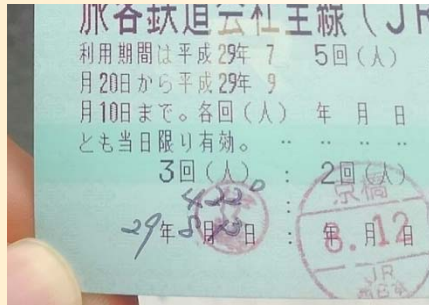 旅客鉄道会社全線（JR
利用期間は平成29年 7 5回(人)
月20日から平成29年 9
月10日まで。各回(人) 年 月 日
とも当日限り有効。
3回(人) : 2回(人)
29年8月 日 : 年 月 日
京橋
8.12
JR